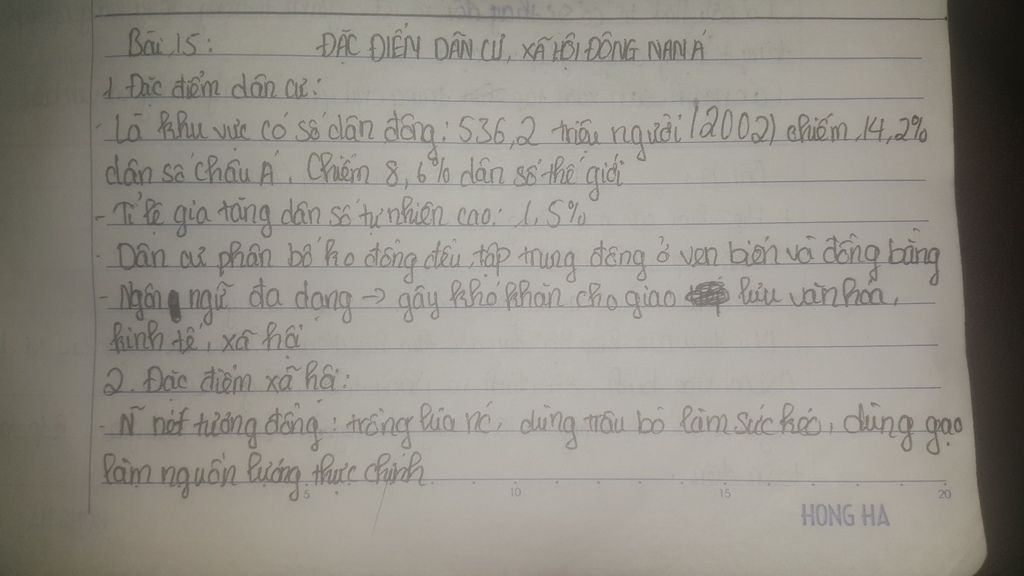 Bài 15: ĐẶC ĐIỂN DÂN CƯ, XÃ HỘI ĐÔNG NAN Á
1. Đặc điểm dân cư:
- Là khu vực có số dân đông: 536,2 triệu người (2002) chiếm 14,2%
dân số châu Á. Chiếm 8,6% dân số thế giới
- Tỉ lệ gia tăng dân số tự nhiên cao: 1,5%
- Dân cư phân bố ko đồng đều, tập trung đông ở ven biển và đồng bằng
- Ngôn ngữ đa dạng → gây khó khăn cho giao lưu văn hóa,
kinh tế, xã hội
2. Đặc điểm xã hội:
- N~ nét tương đồng: trồng lúa nc, dùng trâu bò làm sức kéo, dùng gạo
làm nguồn lương thực chính.
5 10 15 20
HONG HA